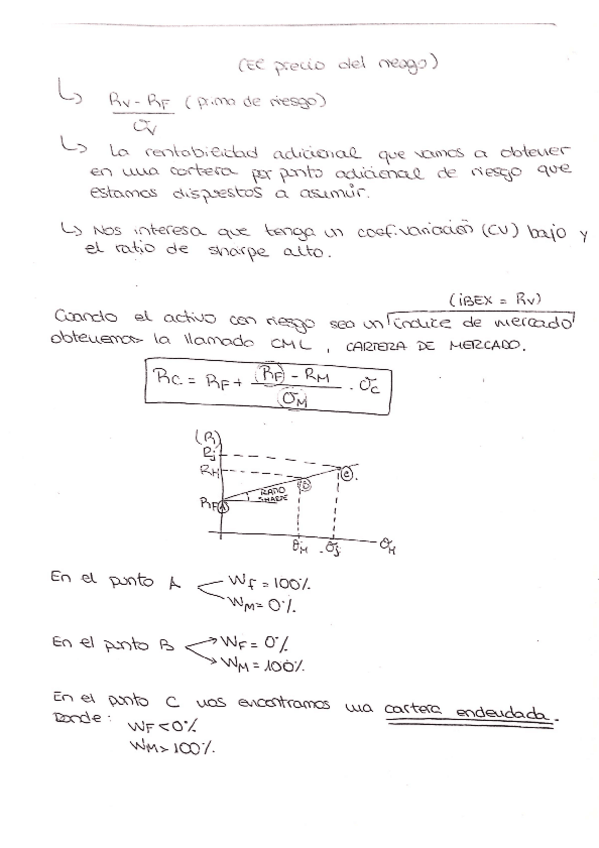 (El precio del riesgo)
↳ Rv - RF (prima de riesgo)
σv
↳ La rentabilidad adicional que vamos a obtener
en una cartera por punto adicional de riesgo que
estamos dispuestos a asumir.
↳ Nos interesa que tenga un coef.variación (CV) bajo y
el ratio de sharpe alto.
(iBEX = Rv)
Cuando el activo con riesgo sea un índice de mercado
obtenemos la llamada CML, CARTERA DE MERCADO.
RC = RF + (RF) - RM / σM · σc
(Ri)
Rj
RM
RF A
RATIO
SHARPE
B
C
σM σj σM
En el punto A Wf = 100%
WM = 0%
En el punto B WF = 0%
WM = 100%
En el punto C nos encontramos una cartera endeudada.
Donde: WF < 0%
WM > 100%